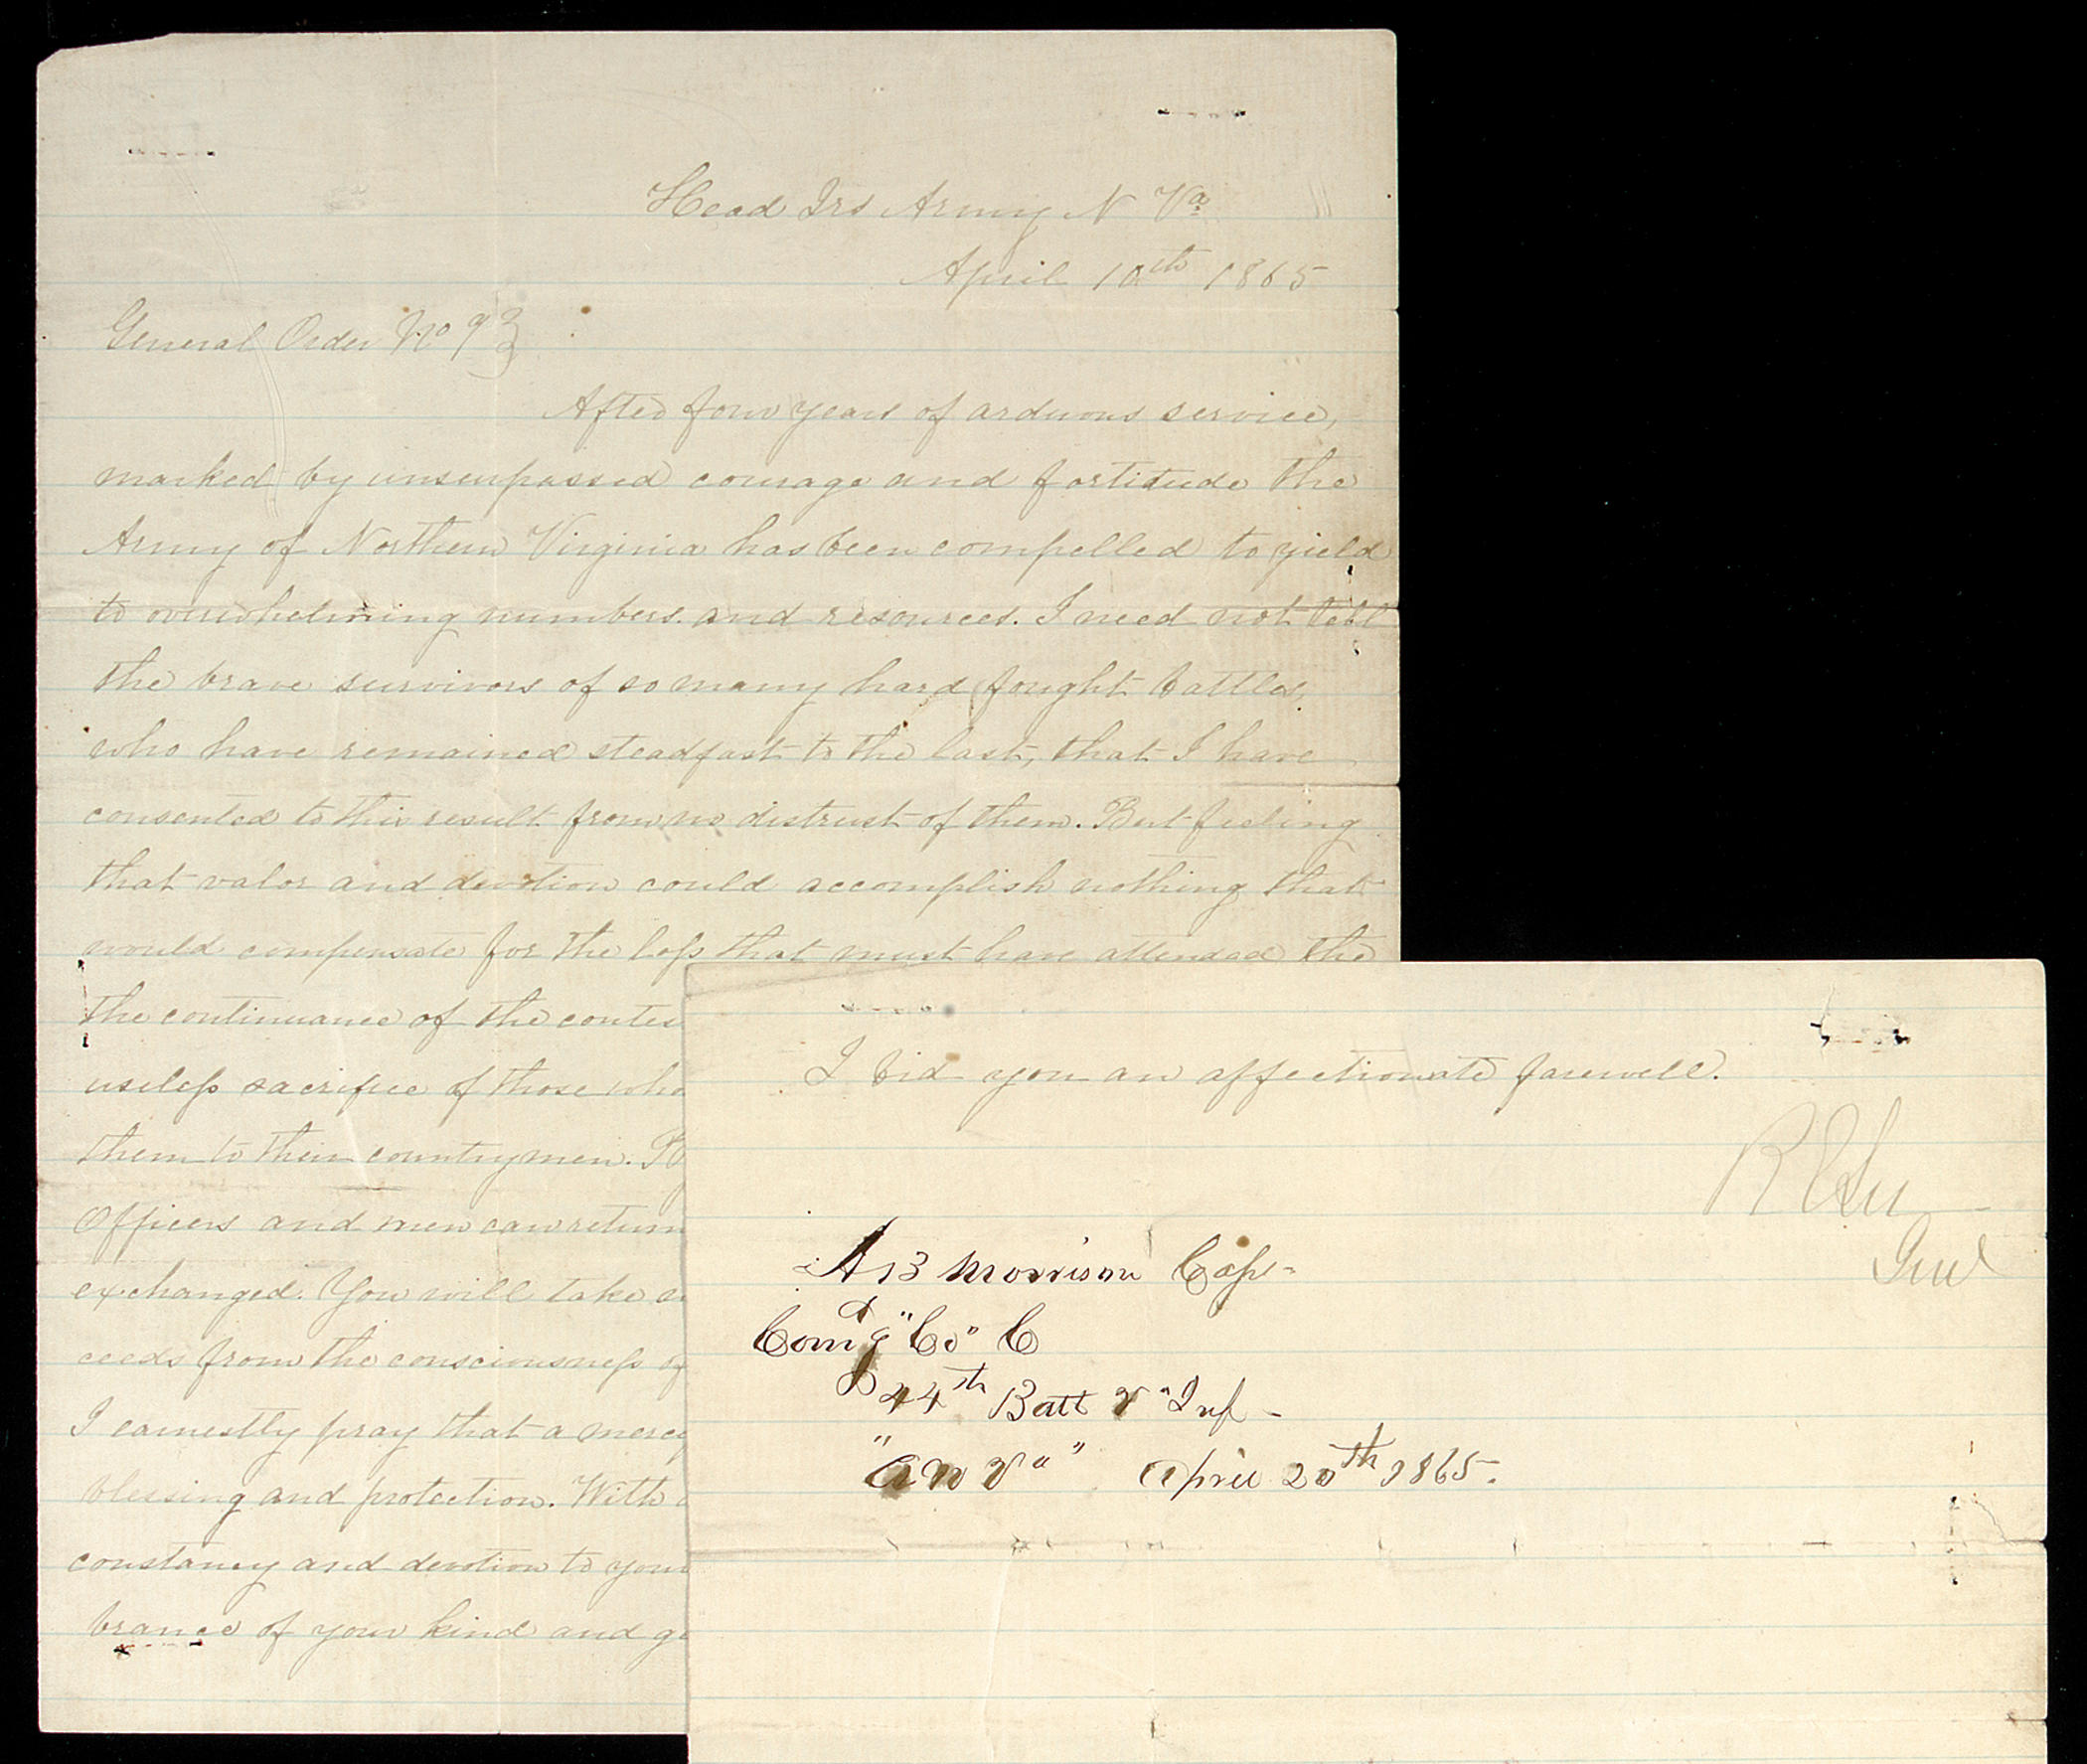 Head Qrs Army N Va
April 10th 1865
General Order No 9}
After four years of arduous service,
marked by unsurpassed courage and fortitude the
Army of Northern Virginia has been compelled to yield
to overwhelming numbers and resources. I need not tell
the brave survivors of so many hard fought battles,
who have remained steadfast to the last, that I have
consented to this result from no distrust of them. But feeling
that valor and devotion could accomplish nothing that
would compensate for the loss that must have attended the
the continuance of the contes
useless sacrifice of those who
them to their countrymen.
Officers and men can return
exchanged. You will take
ceeds from the consciousness of
I earnestly pray that a merc
blessing and protection. With
constancy and devotion to your
brance of your kind and ge
I bid you an affectionate farewell.
R E Lee
Genl
A B Morrison Capt
Comdg "Co" C
44th Batt Va Inf
"A N Va" April 20th 1865.